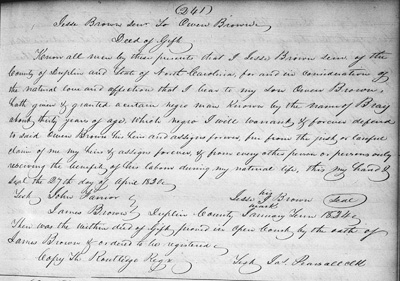 (241)
Jesse Brown senr To Owen Brown
Deed of Gift
Know all men by these presents that I Jesse Brown senr of the
County of Duplin and State of North Carolina, for and in consideration of
the natural love and affection that I bear to my son Owen Brown
hath given & granted a certain negro man Known by the name of Bray
about thirty years of age which negro I will warrant & forever defend
to said Owen Brown his heirs and assigns forever free from the just or lawful
claim of me my heirs & assigns forever, & from every other person or persons only
reserving the benefit of his labour during my natural life, this my hand &
Seal the 27th day of April 1831
Test John Farrior Jesse his mark Brown Seal
James Brown Duplin County January Term 1834
Then was the within deed of Gift proved in Open Court by the oath of
James Brown & ordered to be registered
Copy Th Routledge Regr Test Jas Pearsall Clk